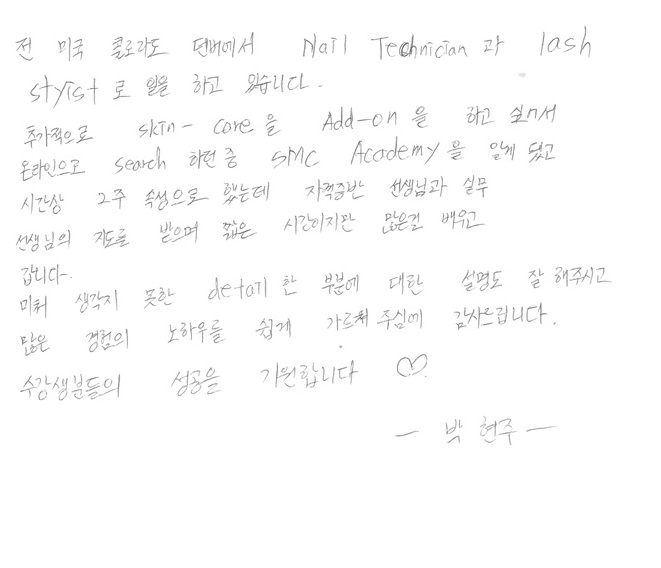 전 미국 콜로라도 덴버에서 Nail Technician 과 lash
stylist 로 일을 하고 있습니다.
추가적으로 skin - care 을 Add-on 을 하고 싶어서
온라인으로 search 하던 중 SMC Academy 을 알게 됐고
시간상 2주 속성으로 했는데 자격증반 선생님과 실무
선생님의 지도를 받으며 짧은 시간이지만 많은걸 배우고
갑니다.
미처 생각지 못한 detail 한 부분에 대한 설명도 잘 해주시고
많은 경험의 노하우를 쉽게 가르쳐 주심에 감사드립니다.
수강생분들의 성공을 기원합니다 ♡.
- 박 현주 -